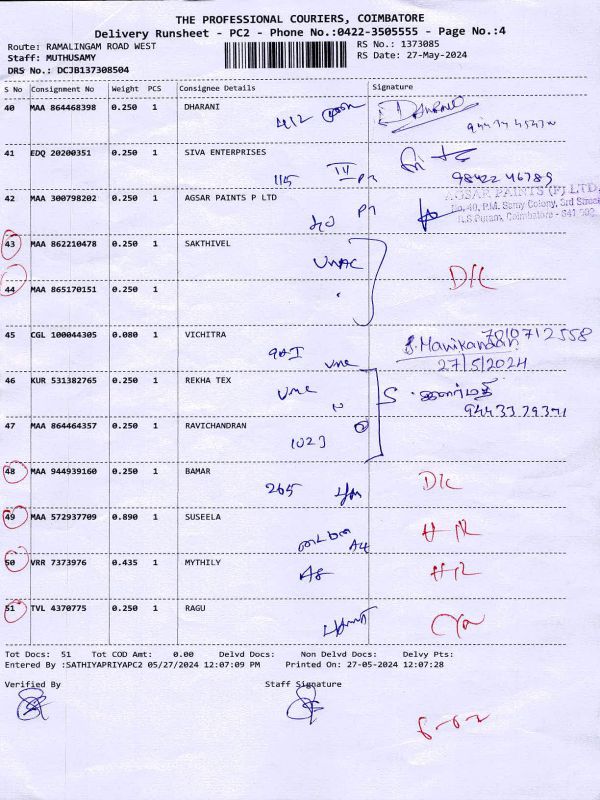 THE PROFESSIONAL COURIERS, COIMBATORE
Delivery Runsheet - PC2 - Phone No.:0422-3505555 - Page No.:4
Route: RAMALINGAM ROAD WEST
RS No.: 1373085
Staff: MUTHUSAMY
RS Date: 27-May-2024
DRS No.: DCJB137308504
S No Consignment No Weight PCS Consignee Details Signature
40 MAA 864468398 0.250 1 DHARANI
412
41 EDQ 20200351 0.250 1 SIVA ENTERPRISES
115
98422 46789
42 MAA 300798202 0.250 1 AGSAR PAINTS P LTD
AGSAR PAINTS (P) LTD.
No.40, P.M. Samy Colony, 3rd Street
R.S Puram, Coimbatore - 641 002.
43 MAA 862210478 0.250 1 SAKTHIVEL
D/C
44 MAA 865170151 0.250 1
45 CGL 100044305 0.080 1 VICHITRA
7010712558
S. Manikandan
27/5/2024
46 KUR 531382765 0.250 1 REKHA TEX
94433 79371
47 MAA 864464357 0.250 1 RAVICHANDRAN
1023
48 MAA 944939160 0.250 1 BAMAR
265
D/C
49 MAA 572937709 0.890 1 SUSEELA
A4
50 VRR 7373976 0.435 1 MYTHILY
A8
51 TVL 4370775 0.250 1 RAGU
Tot Docs: 51 Tot COD Amt: 0.00 Delvd Docs: Non Delvd Docs: Delvy Pts:
Entered By :SATHIYAPRIYAPC2 05/27/2024 12:07:09 PM Printed On: 27-05-2024 12:07:28
Verified By Staff Signature